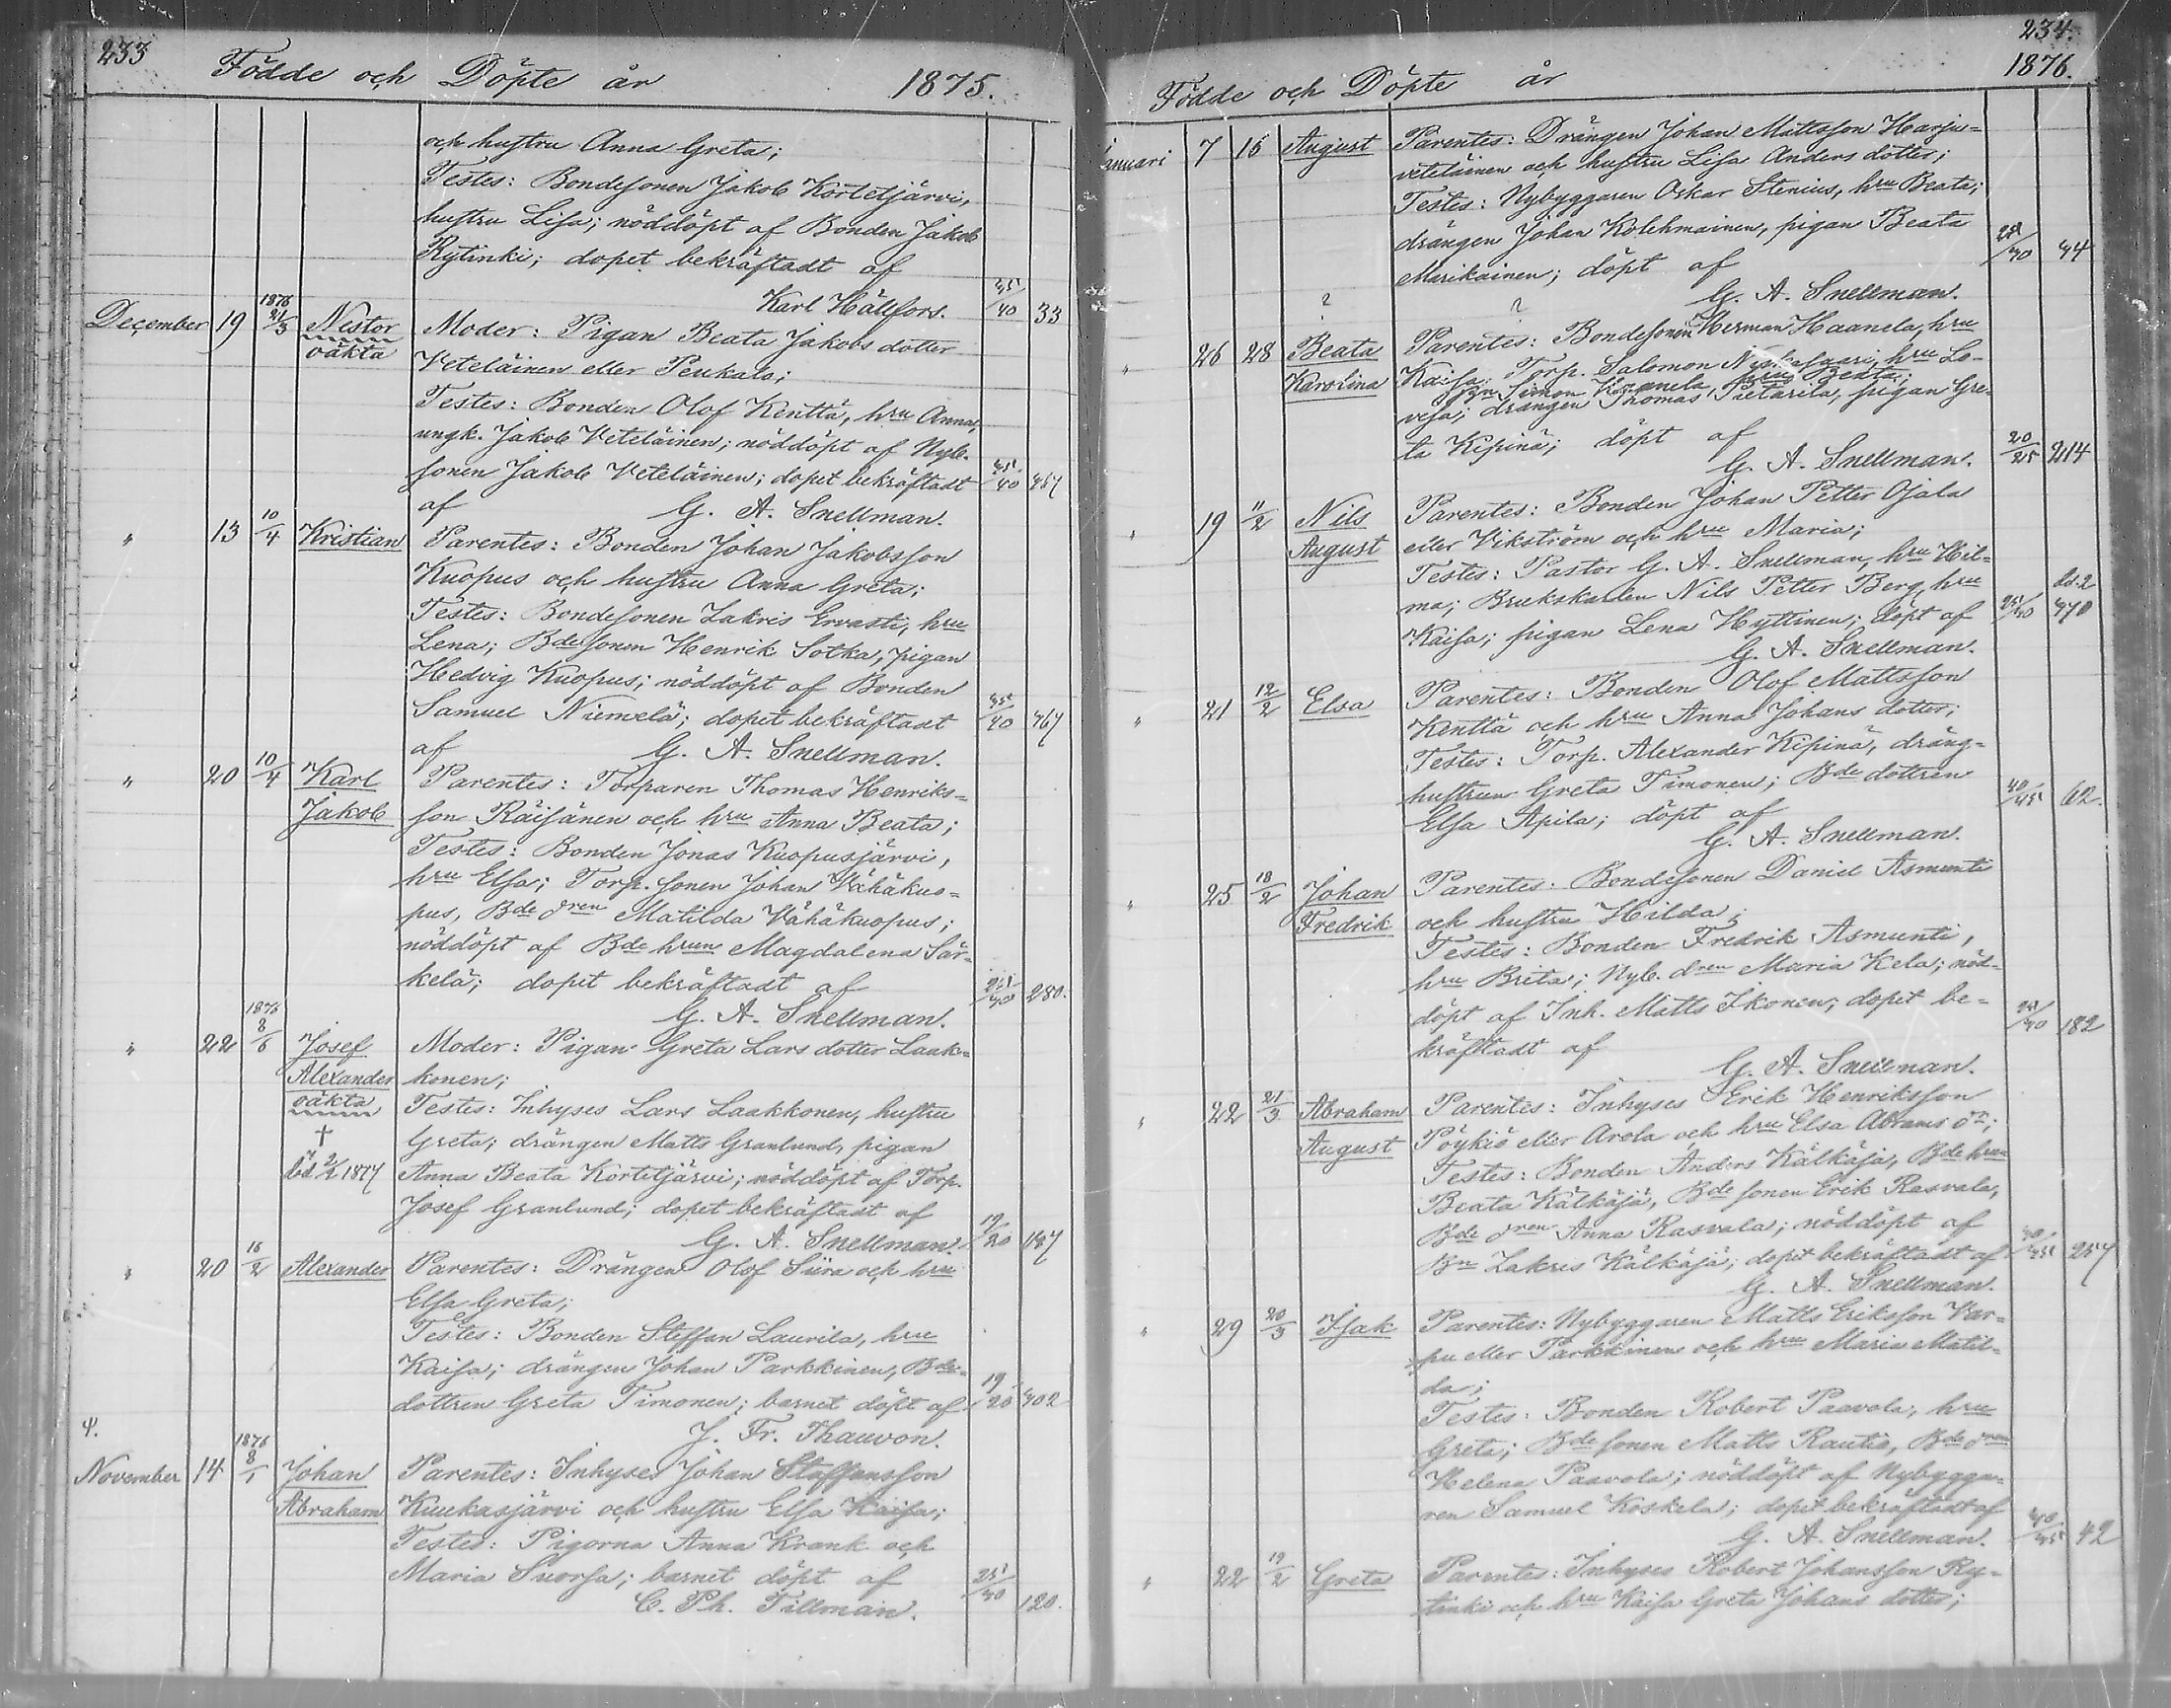 233
Födde och Döpte år 1875.
och hustru Anna Greta;
Testes: Bondesonen Jakob Kortetjärvi,
hustru Lisa; nöddöpt af Bonden Jakob
Rytinki; dopet bekräftadt af
Karl Hällfors. 35/40 33
December 19 1876 21/3 Nestor Moder: Pigan Beata Jakobs dotter
oäkta Veteläinen eller Peukalo;
Testes: Bonden Olof Kenttä, hru Anna,
ungk. Jakob Veteläinen; nöddöpt af Nyb.
sonen Jakob Veteläinen; dopet bekräftadt 35/40 457
af G. A. Snellman.
" 13 10/4 Kristian Parentes: Bonden Johan Jakobsson
Kuopus och hustru Anna Greta;
Testes: Bondesonen Zakris Ervasti, hru
Lena; Bde sonen Henrik Sotka, pigan
Hedvig Kuopus; nöddöpt af Bonden
Samuel Niemelä; dopet bekräftadt 35/40 467
af G. A. Snellman.
" 20 10/4 Karl Parentes: Torparen Thomas Henriks=
Jakob son Räisänen och hru Anna Beata;
Testes: Bonden Jonas Kuopusjärvi,
hru Elsa; Torp. sonen Johan Vähäkuo=
pus, Bde dren Matilda Vähäkuopus;
nöddöpt af Bde hrun Magdalena Sär=
kelä; dopet bekräftadt af 280.
G. A. Snellman.
" 22 1876 8/6 Josef Moder: Pigan Greta Lars dotter Laak=
Alexander konen;
oäkta Testes: Inhyses Lars Laakkonen, hustru
† Greta; drängen Matts Granlund, pigan
död 2/2 1877 Anna Beata Kortetjärvi; nöddöpt af Torp.
Josef Granlund; dopet bekräftadt af
G. A. Snellman. 19/20 187
" 20 16/2 Alexander Parentes: Drängen Olof Siira och hru
Elsa Greta;
Testes: Bonden Steffan Laurila, hru
Kaisa; drängen Johan Parkkinen, Bde=
dottren Greta Timonen; barnet döpt af 19/20 402
J. Fr. Thauvon.
November 14 1876 8/1 Johan Parentes: Inhyses Johan Staffansson
Abraham Kuukasjärvi och hustru Elsa Kaisa;
Testes: Pigorna Anna Krank och
Maria Suorsa; barnet döpt af 25/30
C. Ph. Tillman. 120.
234.
Födde och Döpte år 1876.
Januari 7 16 August Parentes: Drängen Johan Mattsson Harju=
veteläinen och hustru Lisa Anders dotter;
Testes: Nybyggaren Oskar Stenius, hru Beata;
drängen Johan Kolehmainen, pigan Beata
Marikainen; döpt af 44
? ? G. A. Snellman.
" 26 28 Beata Parentes: Bondesonen Herman Haanela, hru
Karolina Kaisa. Torp. Salomon hru Lo-
Bn Simon Haanela, hru Beata;
visa; drängen Thomas Pietarila, pigan Gre-
ta Kipinä; döpt af 20/25 214
G. A. Snellman.
" 19 11/2 Nils Parentes: Bonden Johan Petter Ojala
August eller Vikström och hru Maria;
Testes: Pastor G. A. Snellman, hru Hil=
ma; Brukskarlen Nils Petter Berg, hru
Kaisa; pigan Lena Hyttinen; döpt af 470
G. A. Snellman.
" 21 12/2 Elsa Parentes: Bonden Olof Mattsson
Kenttä och hru Anna Johans dotter;
Testes: Torp. Alexander Kipinä, dräng=
hustrun Greta Timonen; Bde dottren
Elsa Apila; döpt af 40/45 62.
G. A. Snellman.
" 25 18/2 Johan Parentes: Bondesonen Daniel Asmunti
Fredrik och hustru Hilda;
Testes: Bonden Fredrik Asmunti,
hru Brita; Nyb. dren Maria Kela; nöd=
döpt af Inh. Matts Ikonen; dopet be=
kräftadt af 182
G. A. Snellman.
" 22 21/3 Abraham Parentes: Inhyses Erik Henriksson
August Pöykiö eller Arola och hru Elsa Abrams dr;
Testes: Bonden Anders Kälkäjä, Bde hrun
Beata Kälkäjä, Bde sonen Erik Rasvala,
Bde dren Anna Rasvala; nöddöpt af
Bn Zakris Kälkäjä; dopet bekräftadt af 257
G. A. Snellman.
" 29 20/3 Isak Parentes: Nybyggaren Matts Eriksson Kar=
pu eller Parkkinen och hru Maria Matil=
da;
Testes: Bonden Robert Paavola, hru
Greta; Bde sonen Matts Rautio, Bde dren
Helena Paavola; nöddöpt af Nybygga=
ren Samuel Koskela; dopet bekräftadt af
G. A. Snellman. 40/45 42
" 22 19/2 Greta Parentes: Inhyses Robert Johansson Ry=
tinki och hru Kaisa Greta Johans dotter;